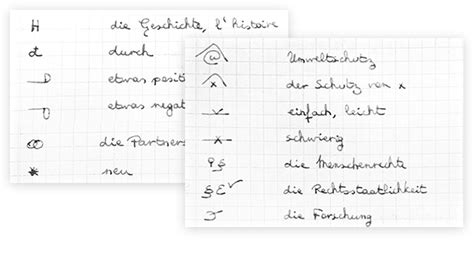 H die Geschichte, l'histoire
durch
etwas posit
etwas negat
die Partners
neu
@ Umweltschutz
x der Schutz von x
einfach, leicht
x schwierig
die Menschenrechte
die Rechtsstaatlichkeit
die Forschung